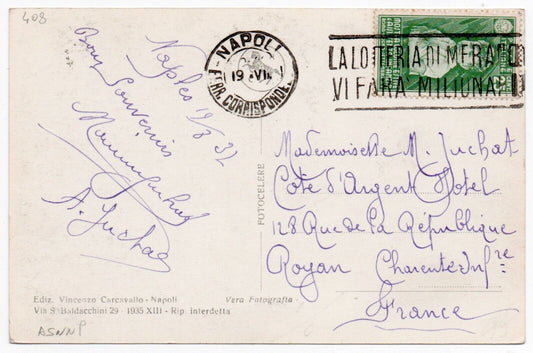 408
Naples 19/8 37
Bons Souvenirs
A. Juchat
Ediz. Vincenzo Carcavallo - Napoli
Via S. Baldacchini 29 - 1935 XIII - Rip interdetta
ASNNP
FOTOCELERE
Vera Fotografia
NAPOLI
19 VIII
FERR. CORRISPONDE
LA LOTTERIA DI MERANO
VI FARA MILIONARI
Mademoiselle M. Juchat
Côte d'Argent Hotel
128 Rue de la République
Royan Charente Infre
France